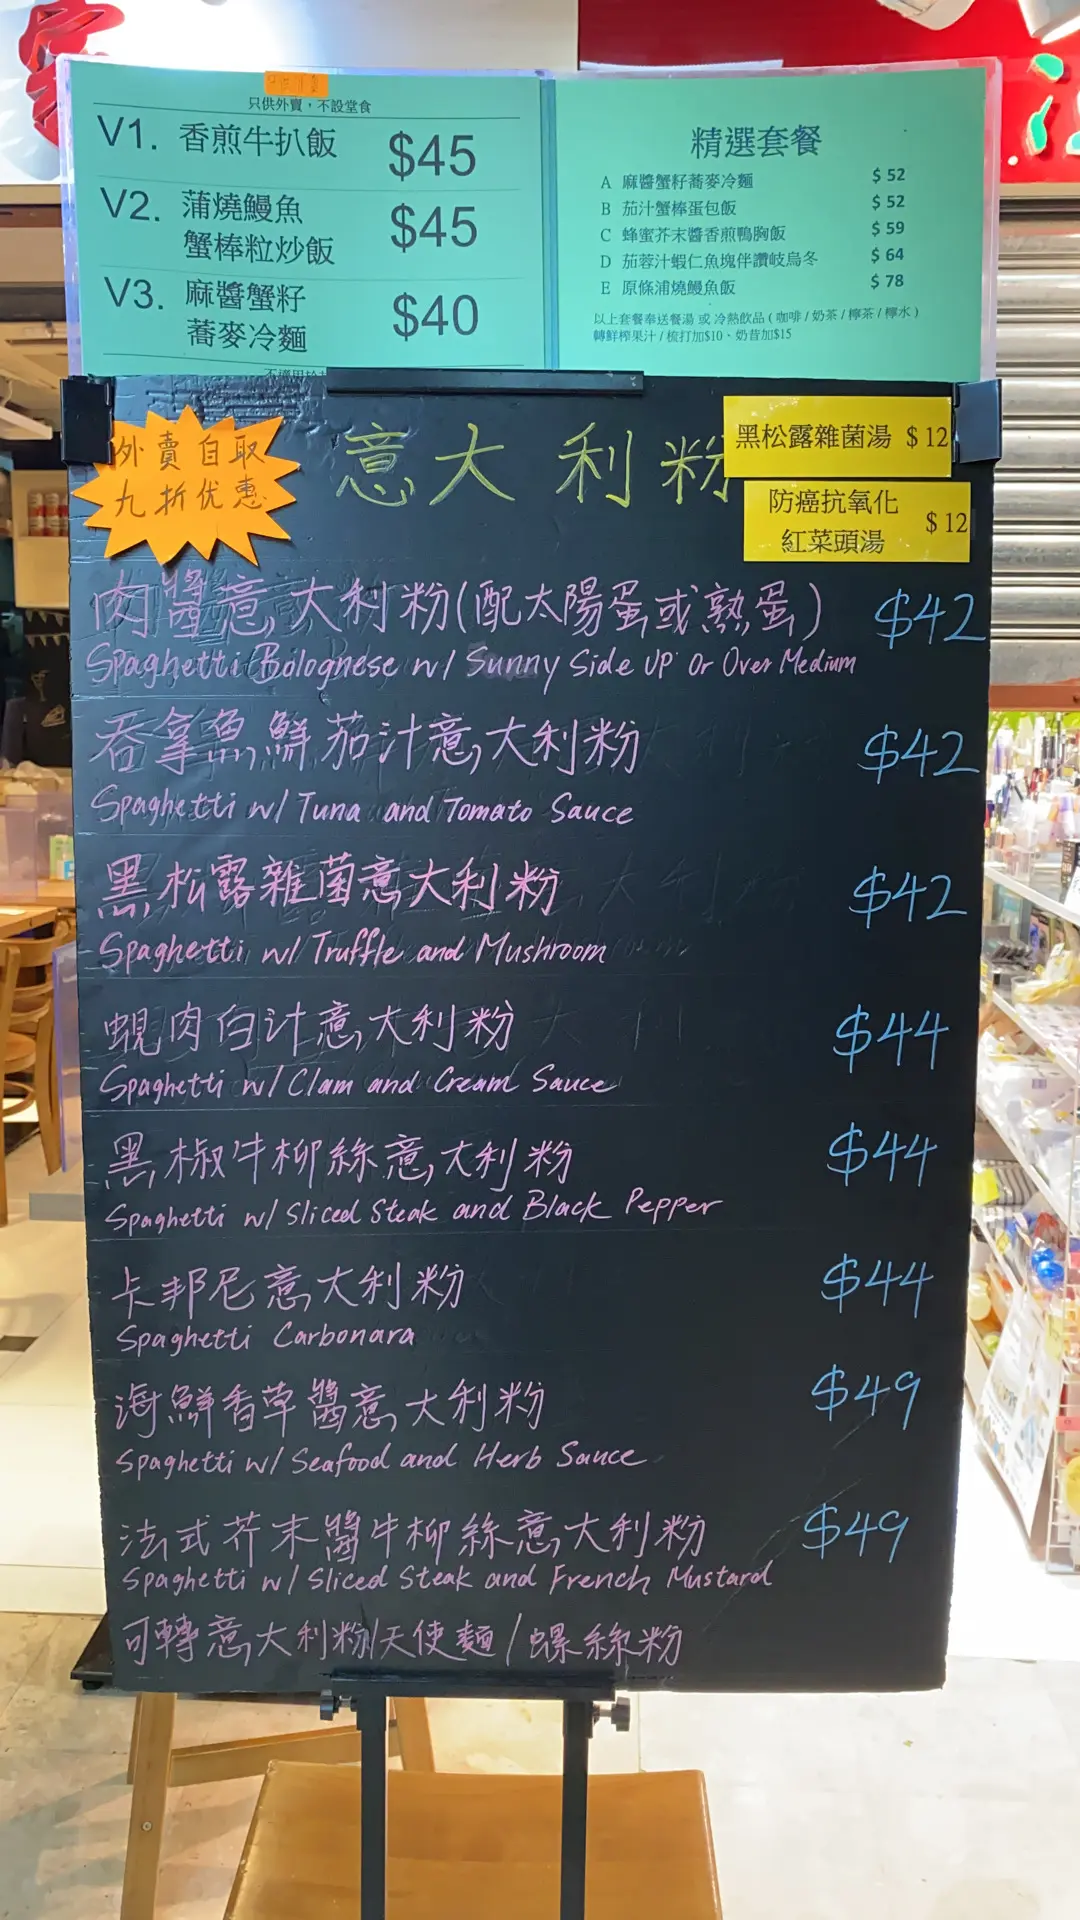 只供外賣，不設堂食
V1. 香煎牛扒飯 $45
V2. 蒲燒鰻魚
蟹棒粒炒飯 $45
V3. 麻醬蟹籽
蕎麥冷麵 $40
精選套餐
A 麻醬蟹籽蕎麥冷麵 $ 52
B 茄汁蟹棒蛋包飯 $ 52
C 蜂蜜芥末醬香煎鴨胸飯 $ 59
D 茄蓉汁蝦仁魚塊伴讚岐烏冬 $ 64
E 原條浦燒鰻魚飯 $ 78
以上套餐奉送餐湯 或 冷熱飲品 ( 咖啡 / 奶茶 / 檸茶 / 檸水 )
轉鮮榨果汁 / 梳打加$10、奶昔加$15
外賣自取
九折优惠
意大利粉
黑松露雜菌湯 $ 12
防癌抗氧化
紅菜頭湯 $ 12
肉醬意大利粉(配太陽蛋或熟蛋) $42
Spaghetti Bolognese w/ Sunny Side UP Or Over Medium
吞拿魚鮮茄汁意大利粉 $42
Spaghetti w/ Tuna and Tomato Sauce
黑松露雜菌意大利粉 $42
Spaghetti w/ Truffle and Mushroom
蜆肉白汁意大利粉 $44
Spaghetti w/ Clam and Cream Sauce
黑椒牛柳絲意大利粉 $44
Spaghetti w/ Sliced Steak and Black Pepper
卡邦尼意大利粉 $44
Spaghetti Carbonara
海鮮香草醬意大利粉 $49
Spaghetti w/ Seafood and Herb Sauce
法式芥末醬牛柳絲意大利粉 $49
Spaghetti w/ Sliced Steak and French Mustard
可轉意大利粉/天使麵/螺絲粉